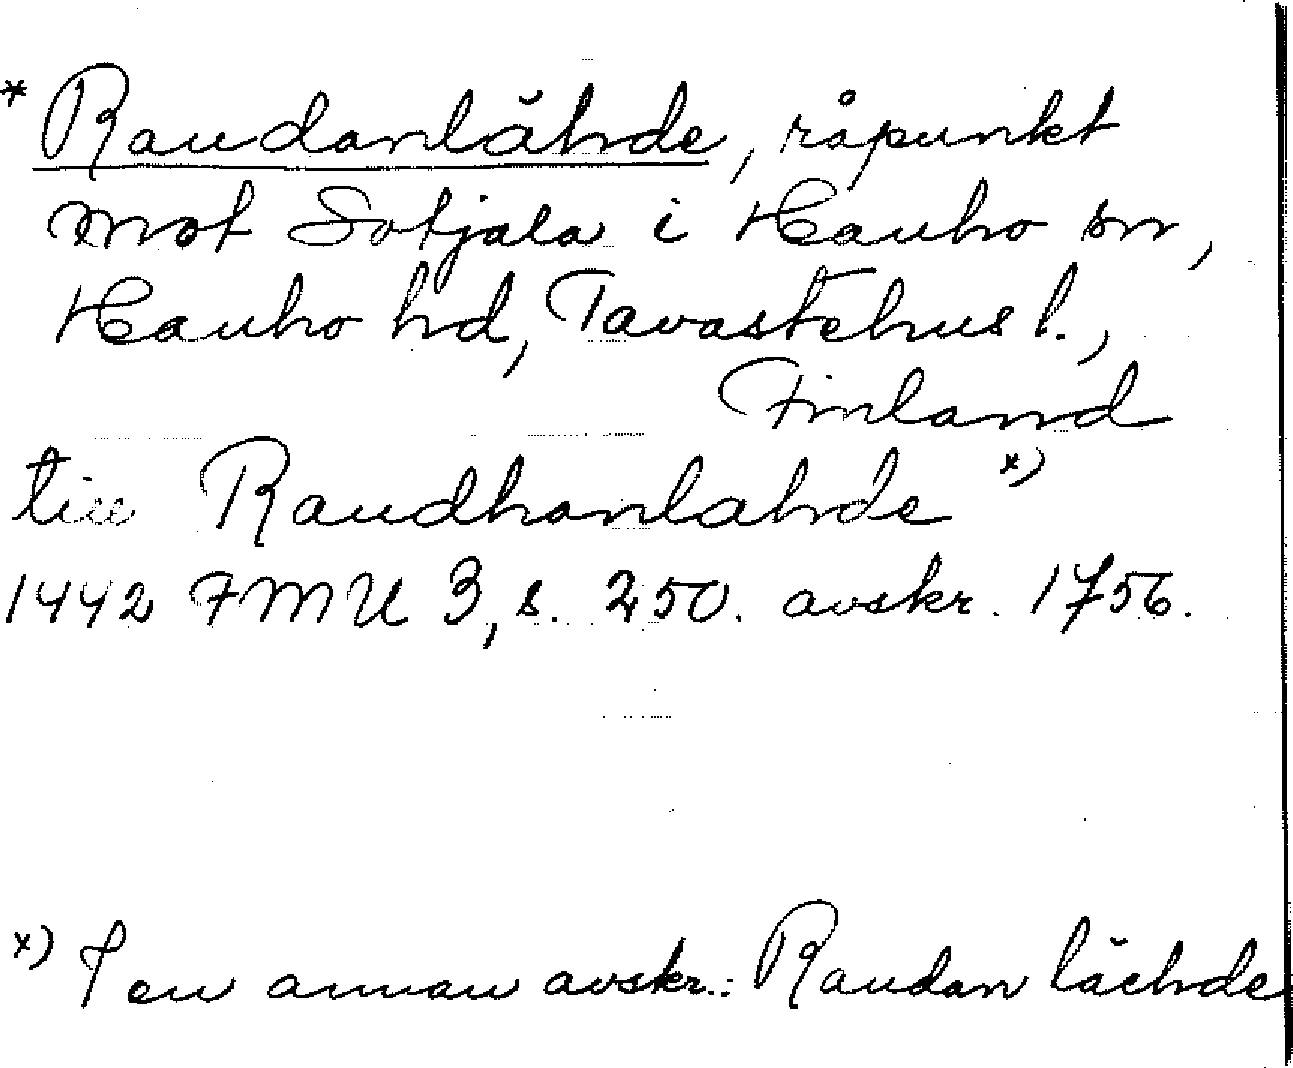 * Raudanlähde, råpunkt
mot Sotjala i Hauho sn,
Hauho hd, Tavastehus l.,
Finland
till Raudhanlahde x)
1442 FMU 3, s. 250. avskr. 1756.
x) I en annan avskr.: Raudan lächde